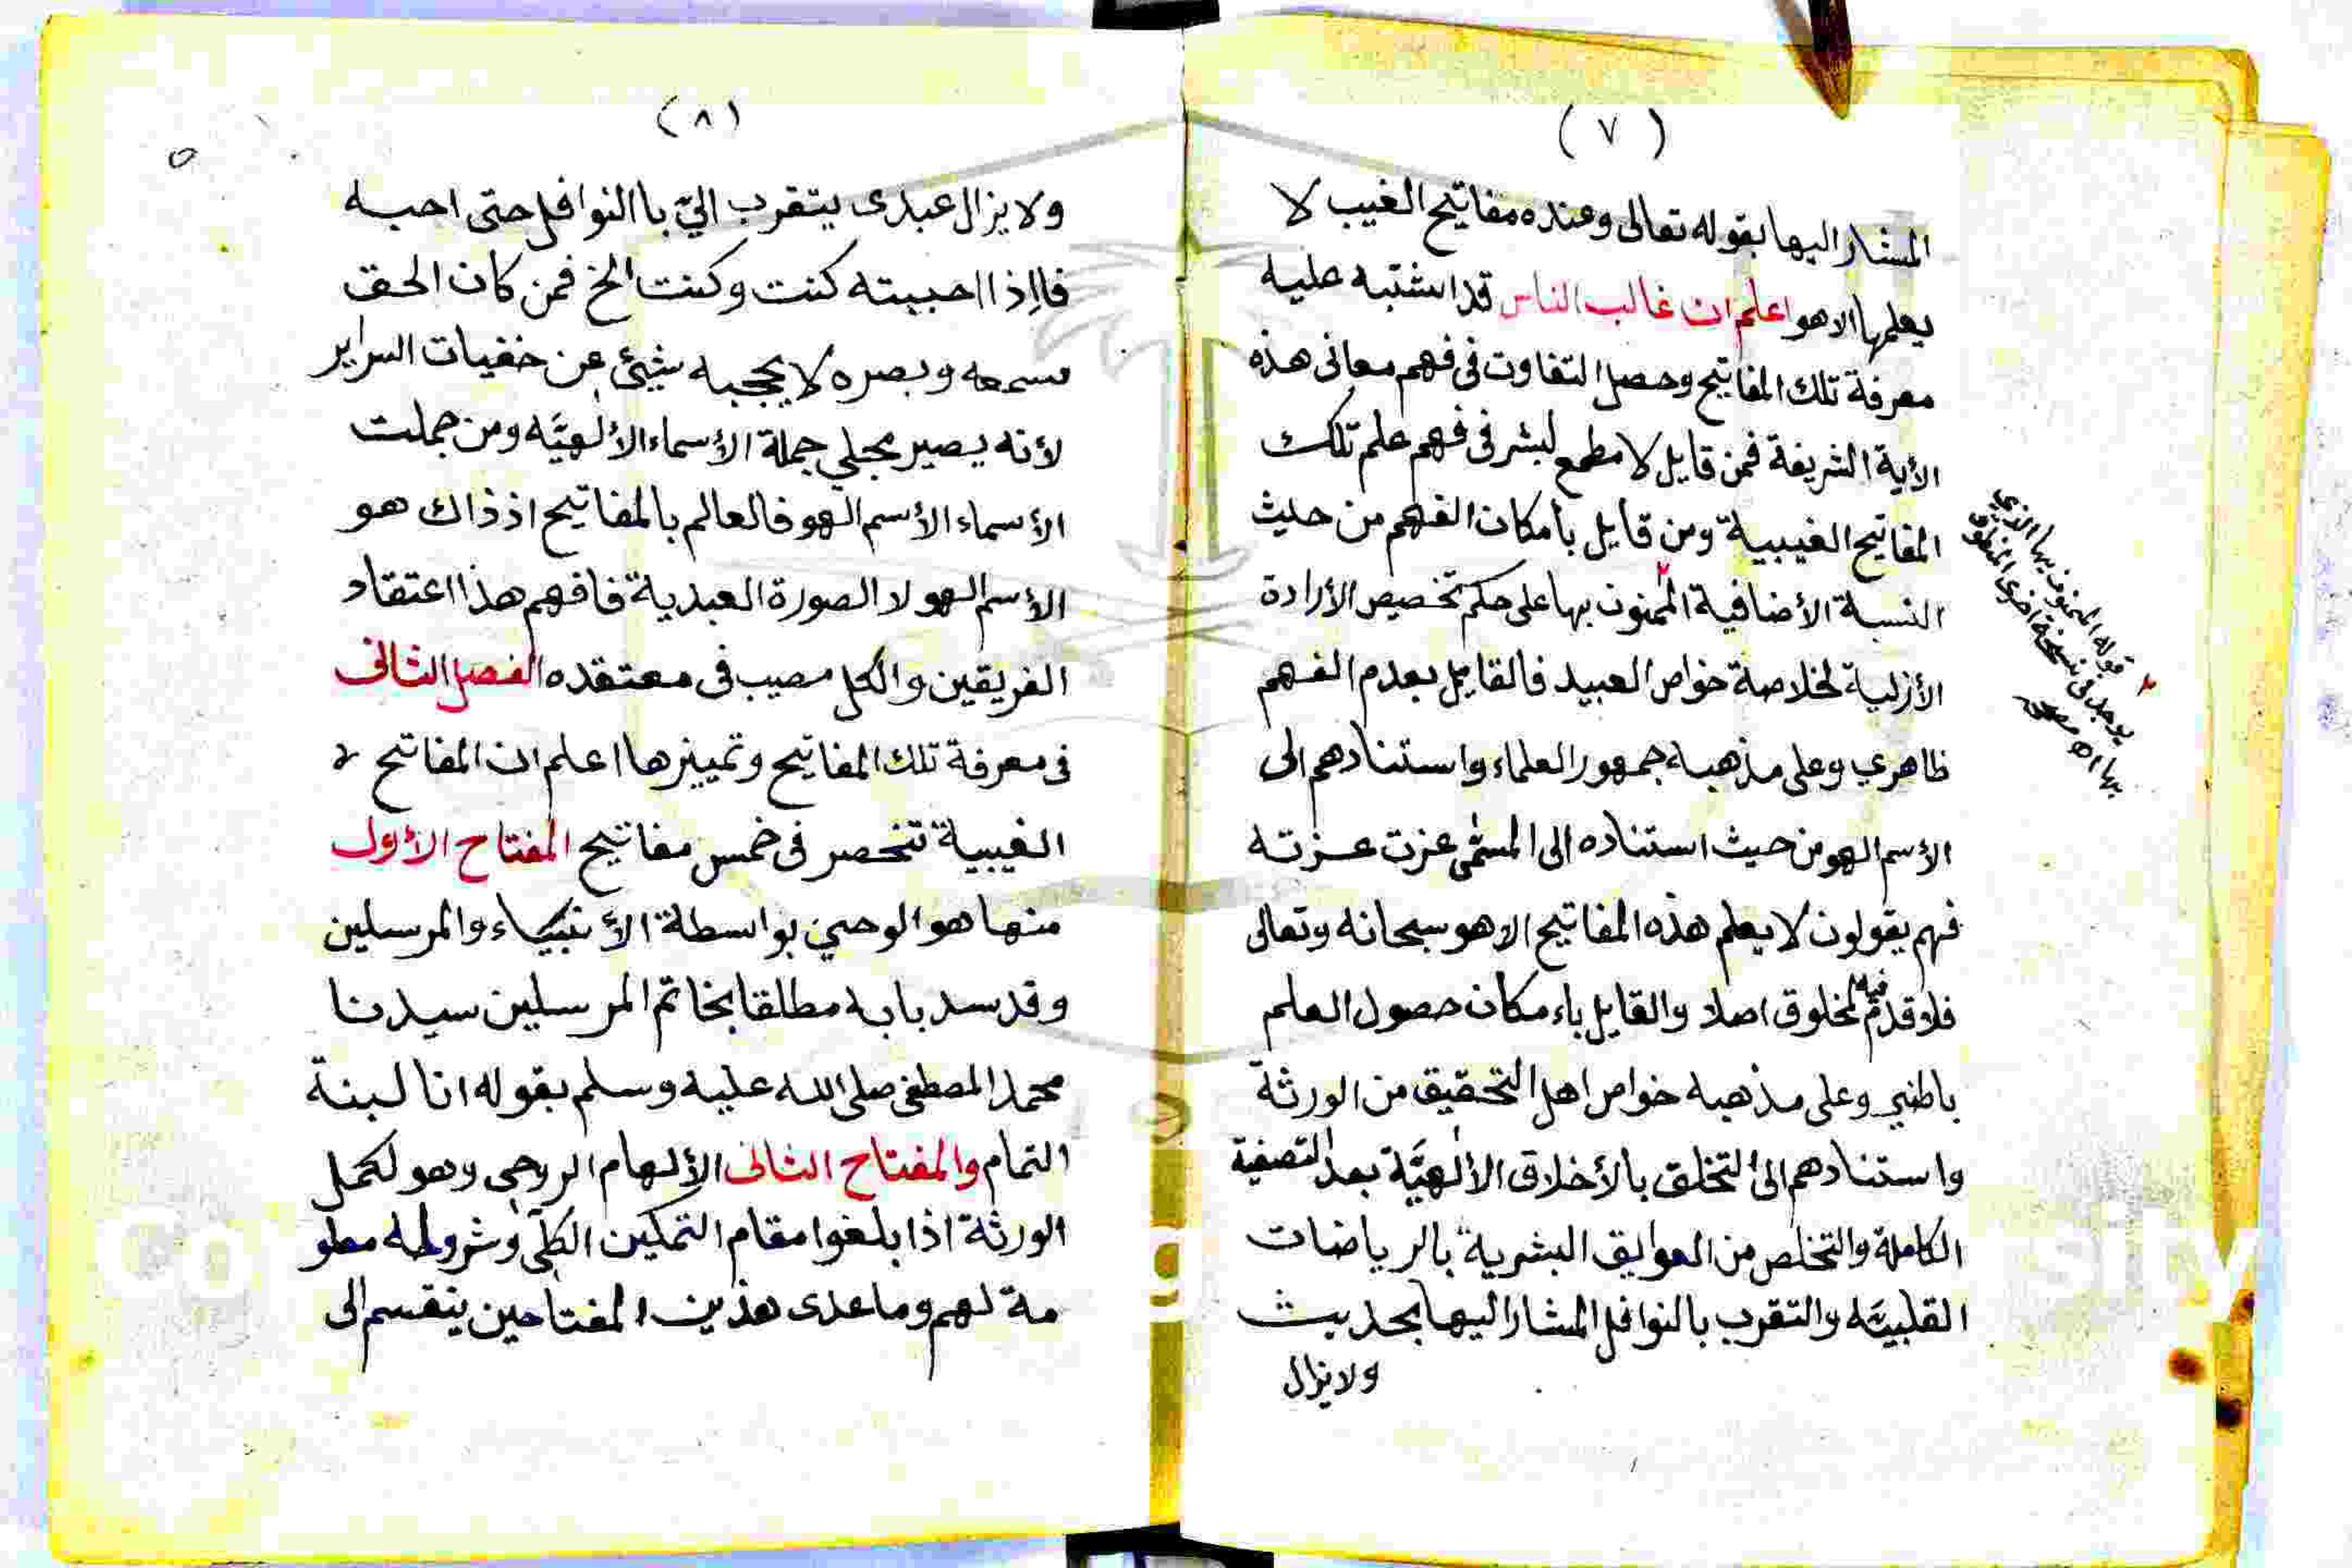 (٧)
المشار اليها بقوله تعالى وعنده مفاتيح الغيب لا
يعلمها الا هو اعلم ان غالب الناس قد اشتبه عليه
معرفة تلك المفاتيح وحصل التفاوت فى فهم معانى هذه
الأية الشريفة فمن قايل لا مطمع لبشر فى فهم علم تلك
المفاتيح الغيبية ومن قايل بأمكان الفهم من حيث
النسبة الأضافية الممنون بها على حكم تخصيص الأرادة
الأزلية لخلاصة خواص العبيد فالقايل بعدم الفهم
ظاهري وعلى مذهبه جمهور العلماء واستنادهم الى
الأسم الهو من حيث استناده الى المسمى عزت عزته
فهم يقولون لا يعلم هذه المفاتيح الا هو سبحانه وتعالى
فلا قدم فيه لمخلوق اصلا والقايل باءمكان حصول العلم
باطني وعلى مذهبه خواص اهل التحقيق من الورثة
واستنادهم الى التخلق بالأخلاق الألهيَّة بعد التصفية
الكاملة والتخلص من العوايق البشرية بالرياضات
القلبيَّه والتقرب بالنوافل المشار اليها بحديث
ولا يزال
٢ قوله الممنون بها الذي
يوجد فى نسخة اخرى
بها اه
(٨)
ولا يزال عبدى يتقرب اليّ باالنوافل حتى احبه
فااِذا احببته كنت وكنت الخ فمن كان الحق
سمعه وبصره لا يحجبه شيئ عن خفيات السراير
لأنه يصير مجلي جملة الأسماء الألهيَّه ومن جملت
الأسماء الأسم الهو فالعالم بالمفاتيح اذ ذاك هو
الأسم الهو لا الصورة العبدية فافهم هذا اعتقاد
الفريقين والكل مصيب فى معتقده الفصل الثانى
فى معرفة تلك المفاتيح وتمييزها اعلم ان المفاتيح
الغيبية تنحصر فى خمس مفاتيح المفتاح الأول
منها هو الوحي بواسطة الأنبياء والمرسلين
وقد سد بابه مطلقا بخاتم المرسلين سيدنا
محمد المصطفى صلى الله عليه وسلم بقوله انا لبنة
التمام والمفتاح الثانى الألهام الروحى وهو لكمل
الورثة اذا بلغوا مقام التمكين الكلّى وشروطه معلو
مة لهم وما عدى هذين المفتاحين ينقسم الى